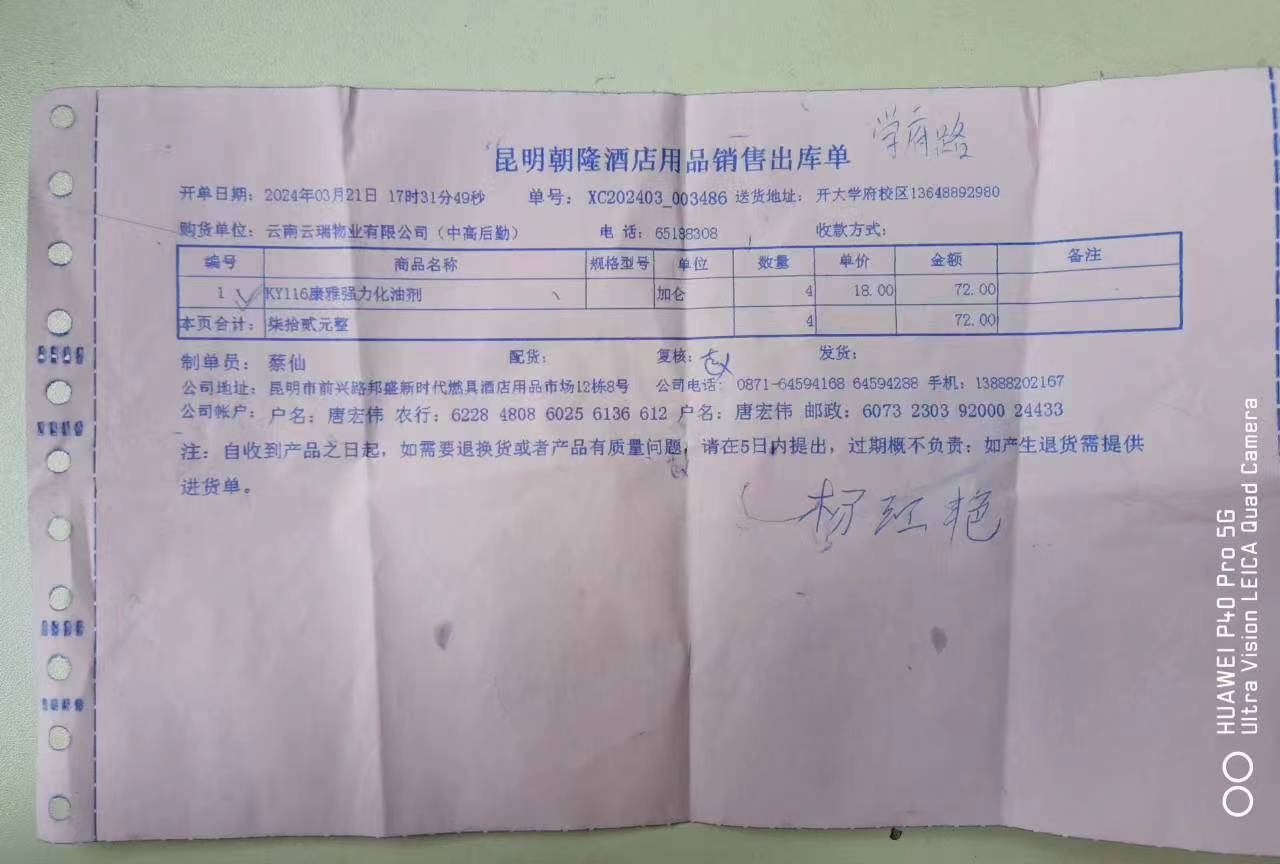 学府路
昆明朝隆酒店用品销售出库单
开单日期: 2024年03月21日 17时31分49秒 单号: XC202403_003486 送货地址: 开大学府校区13648892980
购货单位: 云南云瑞物业有限公司(中高后勤) 电 话: 65188308 收款方式:
编号 商品名称 规格型号 单位 数量 单价 金额 备注
1 KY116康雅强力化油剂 加仑 4 18.00 72.00
本页合计: 柒拾贰元整 4 72.00
制单员: 蔡仙 配货: 复核: 发货:
公司地址: 昆明市前兴路邦盛新时代燃具酒店用品市场12栋8号 公司电话: 0871-64594168 64594288 手机: 13888202167
公司帐户: 户名: 唐宏伟 农行: 6228 4808 6025 6136 612 户名: 唐宏伟 邮政: 6073 2303 92000 24433
注: 自收到产品之日起, 如需要退换货或者产品有质量问题, 请在5日内提出, 过期概不负责; 如产生退货需提供
进货单。
杨红艳
HUAWEI P40 Pro 5G
Ultra Vision LEICA Quad Camera